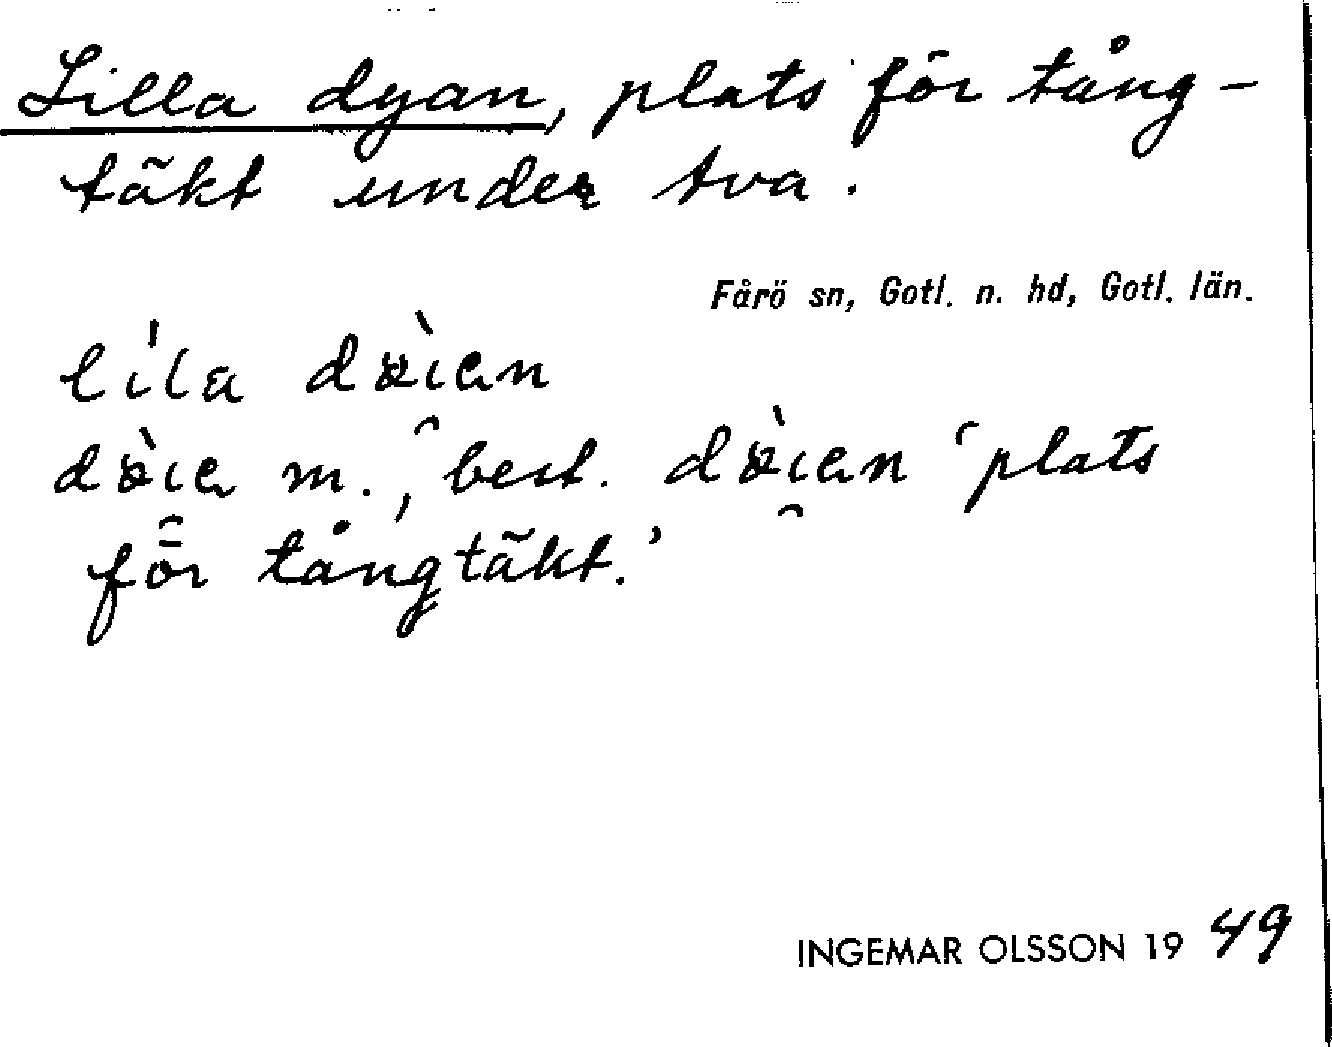 Lilla dyan, plats för tång-
täkt under tva.
Fårö sn, Gotl. n. hd, Gotl. län.
plats
m., best.
för tångtäkt.'
INGEMAR OLSSON 19 49